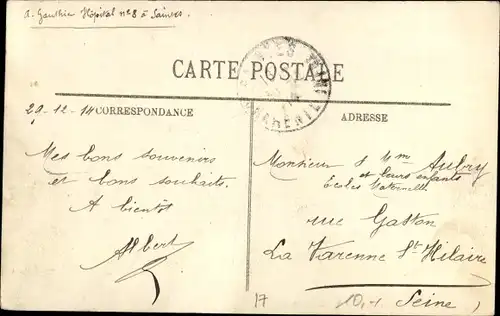 A. Gauthier Hôpital nº 8 à Saintes.
CARTE POSTALE
29-12-14 CORRESPONDANCE
ADRESSE
Mes bons souvenirs
et bons souhaits.
A bientôt
Albert
Monsieur & Mme Aubry
et leurs enfants
Écoles Maternelle
rue Gaston
La Varenne St Hilaire
Seine
17